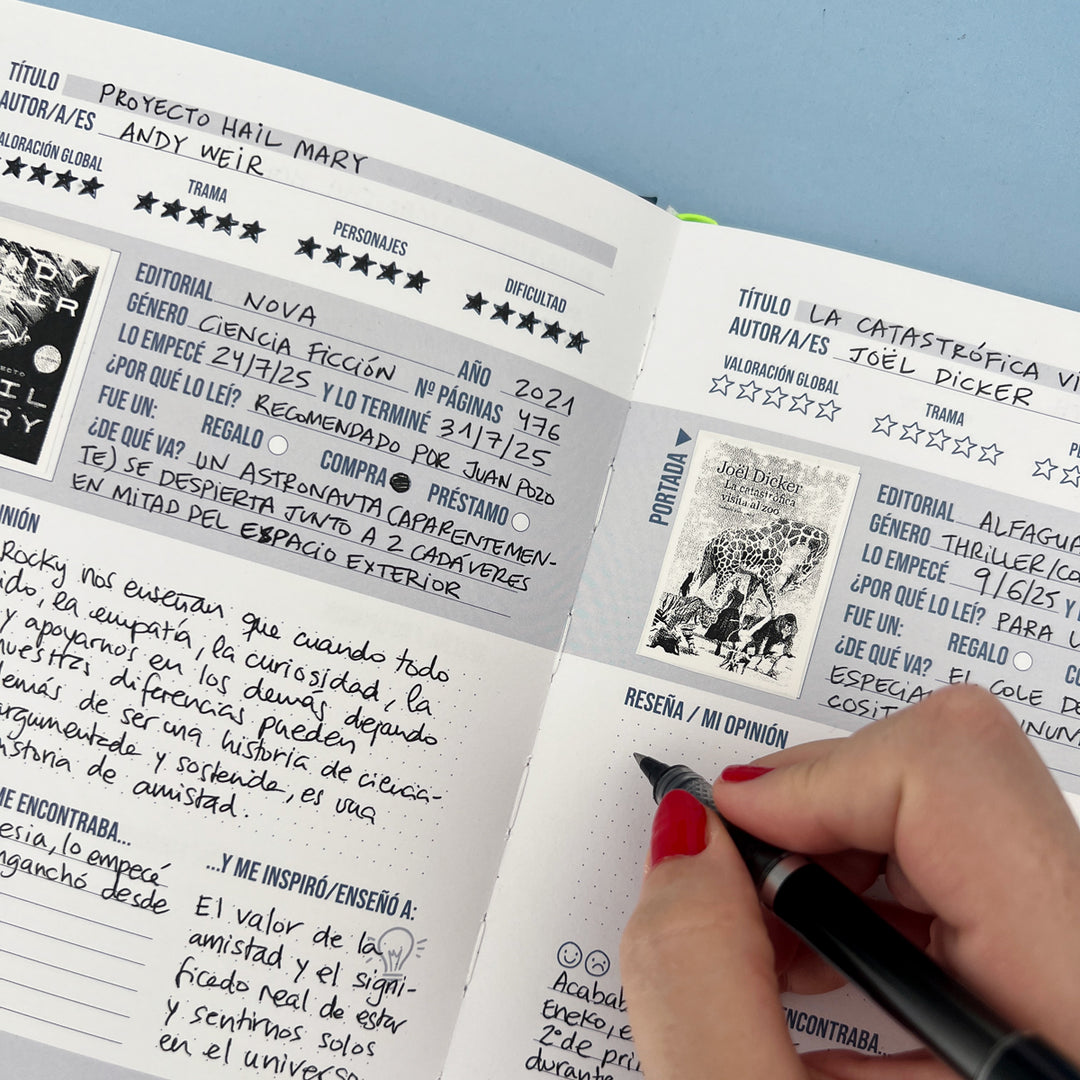 TÍTULO PROYECTO HAIL MARY
AUTOR/A/ES ANDY WEIR
VALORACIÓN GLOBAL
TRAMA
PERSONAJES
DIFICULTAD
EDITORIAL NOVA
GÉNERO CIENCIA FICCIÓN AÑO 2021
LO EMPECÉ 24/7/25 Nº PÁGINAS 476
Y LO TERMINÉ 31/7/25
¿POR QUÉ LO LEÍ? RECOMENDADO POR JUAN POZO
FUE UN: REGALO COMPRA PRÉSTAMO
¿DE QUÉ VA? UN ASTRONAUTA (APARENTEMEN-
TE) SE DESPIERTA JUNTO A 2 CADÁVERES
EN MITAD DEL ESPACIO EXTERIOR
Rocky nos enseñan que cuando todo
la empatía, la curiosidad, la
y apoyarnos en los demás dejando
nuestras diferencias pueden
de ser una historia de ciencia-
argumentada y sostenida, es una
historia de amistad.
ME ENCONTRABA...
lo empecé
desde
...Y ME INSPIRÓ/ENSEÑÓ A:
El valor de la
amistad y el signi-
ficado real de estar
y sentirnos solos
en el universo
TÍTULO LA CATASTRÓFICA
AUTOR/A/ES JOËL DICKER
VALORACIÓN GLOBAL
TRAMA
PORTADA
Joël Dicker
La catastrófica
visita al zoo
EDITORIAL
GÉNERO THRILLER
LO EMPECÉ 9/6/25 Y
¿POR QUÉ LO LEÍ? PARA
FUE UN: REGALO
¿DE QUÉ VA? EL COLE
RESEÑA / MI OPINIÓN
Eneko,
2º de
durante
ENCONTRABA...